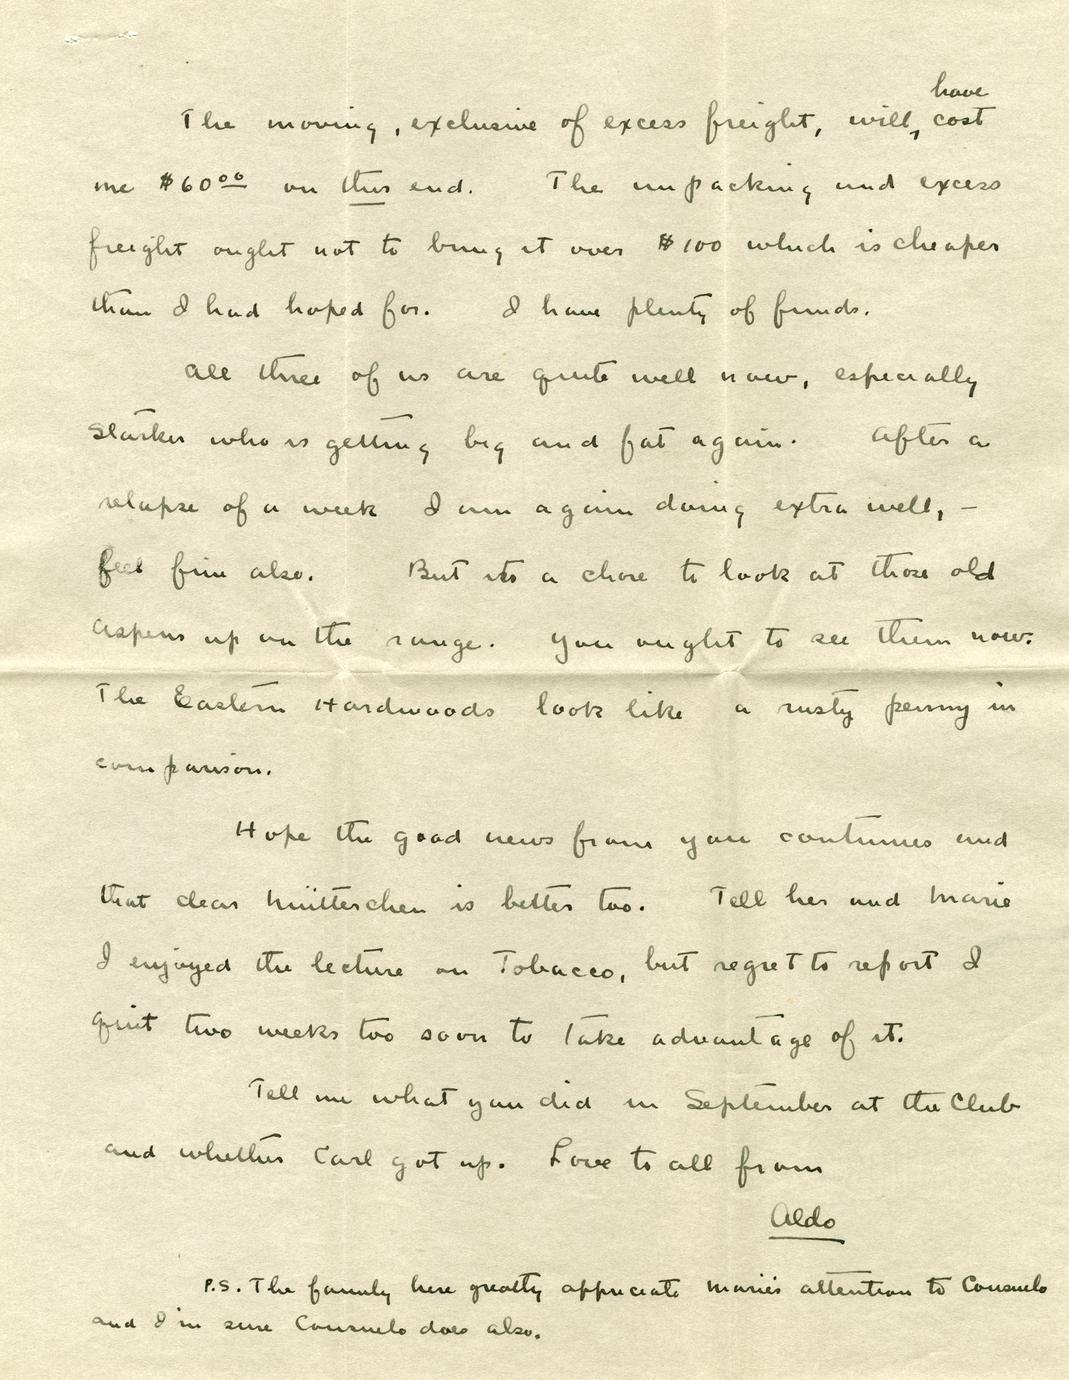 have
The moving, exclusive of excess freight, will, cost
me $60 00 on this end. The unpacking and excess
freight ought not to bring it over $100 which is cheaper
than I had hoped for. I have plenty of funds.
All three of us are quite well now, especially
Starker who is getting big and fat again. After a
relapse of a week I am again doing extra well, —
feel fine also. But its a chore to look at those old
aspens up on the range. You ought to see them now.
The Eastern Hardwoods look like a rusty penny in
comparison.
Hope the good news from you continues and
that dear Mütterchen is better too. Tell her and Marie
I enjoyed the lecture on Tobacco, but regret to report I
quit two weeks too soon to take advantage of it.
Tell me what you did in September at the Club
and whether Carl got up. Love to all from
Aldo
P.S. The family here greatly appreciate Marie's attention to Consuelo
and I'm sure Consuelo does also.